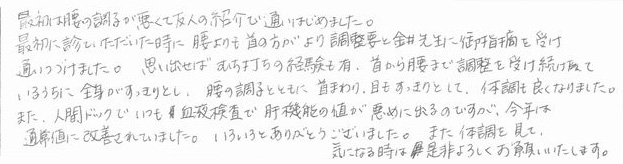 最初は腰の調子が悪くて友人の紹介で通いはじめました。
最初に診ていただいた時に腰よりも首の方がより調整要と金井先生に御指摘を受け
通いつづけました。思い出せばむち打ちの経験も有、首から腰まで調整を受け続けて
いるうちに全身がすっきりとし、腰の調子とともに首まわり、目もすっきりとして、体調も良くなりました。
また、人間ドックでいつも血液検査で肝機能の値が悪めに出るのですが、今年は
通常値に改善されていました。いろいろとありがとうございました。また体調を見て、
気になる時は是非よろしくお願いいたします。